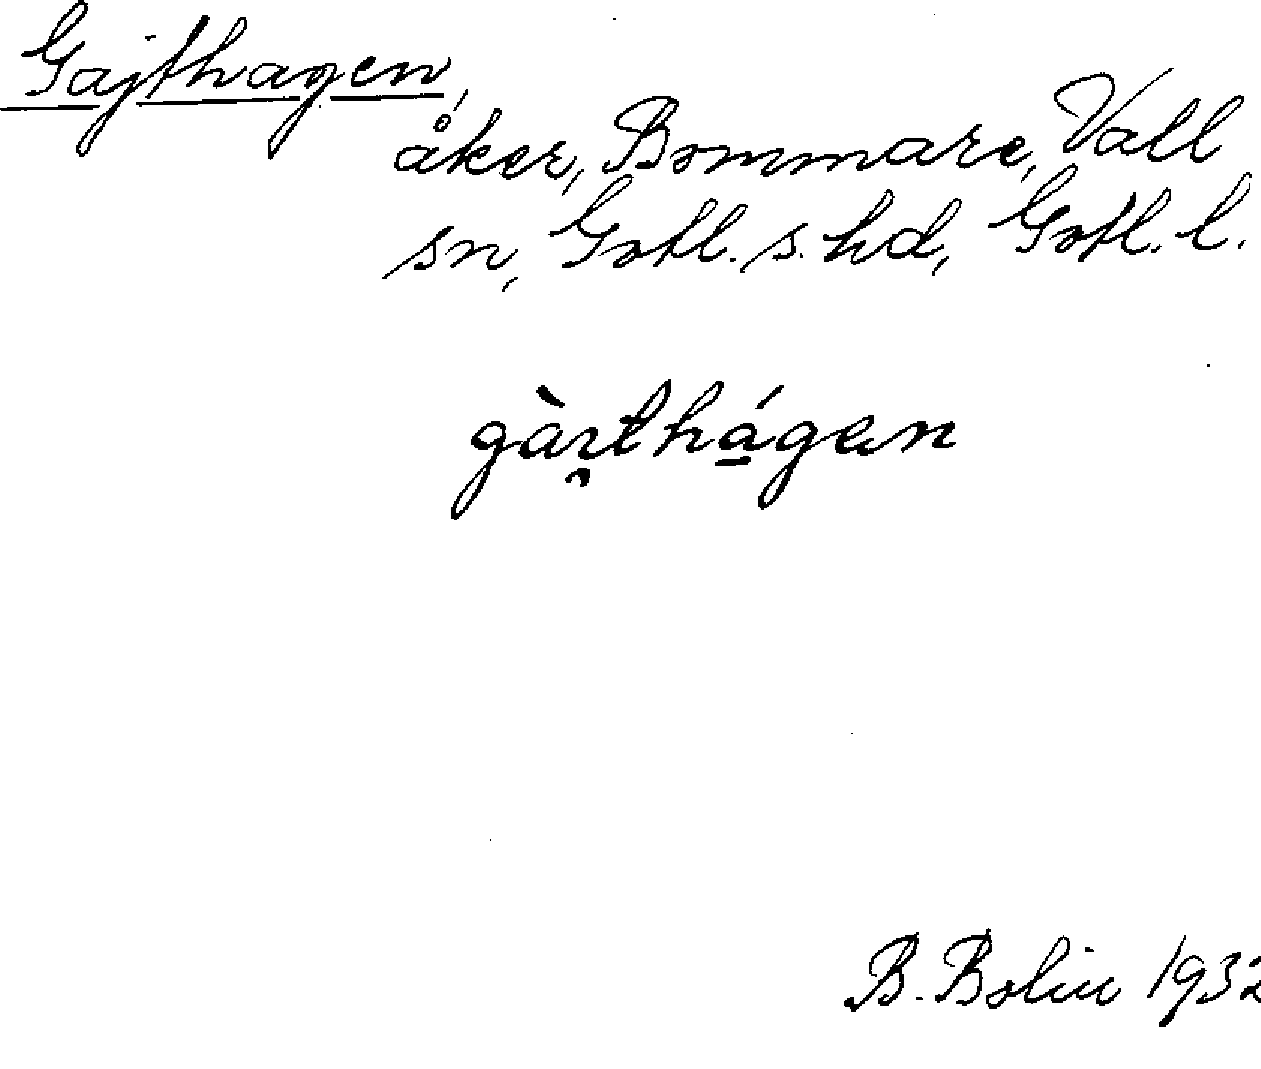 Gajthagen,
åker, Bommare, Vall
sn, Gotl. s. hd, Gotl. l.
gàı̯thá̱gen
B. Bolin 1932